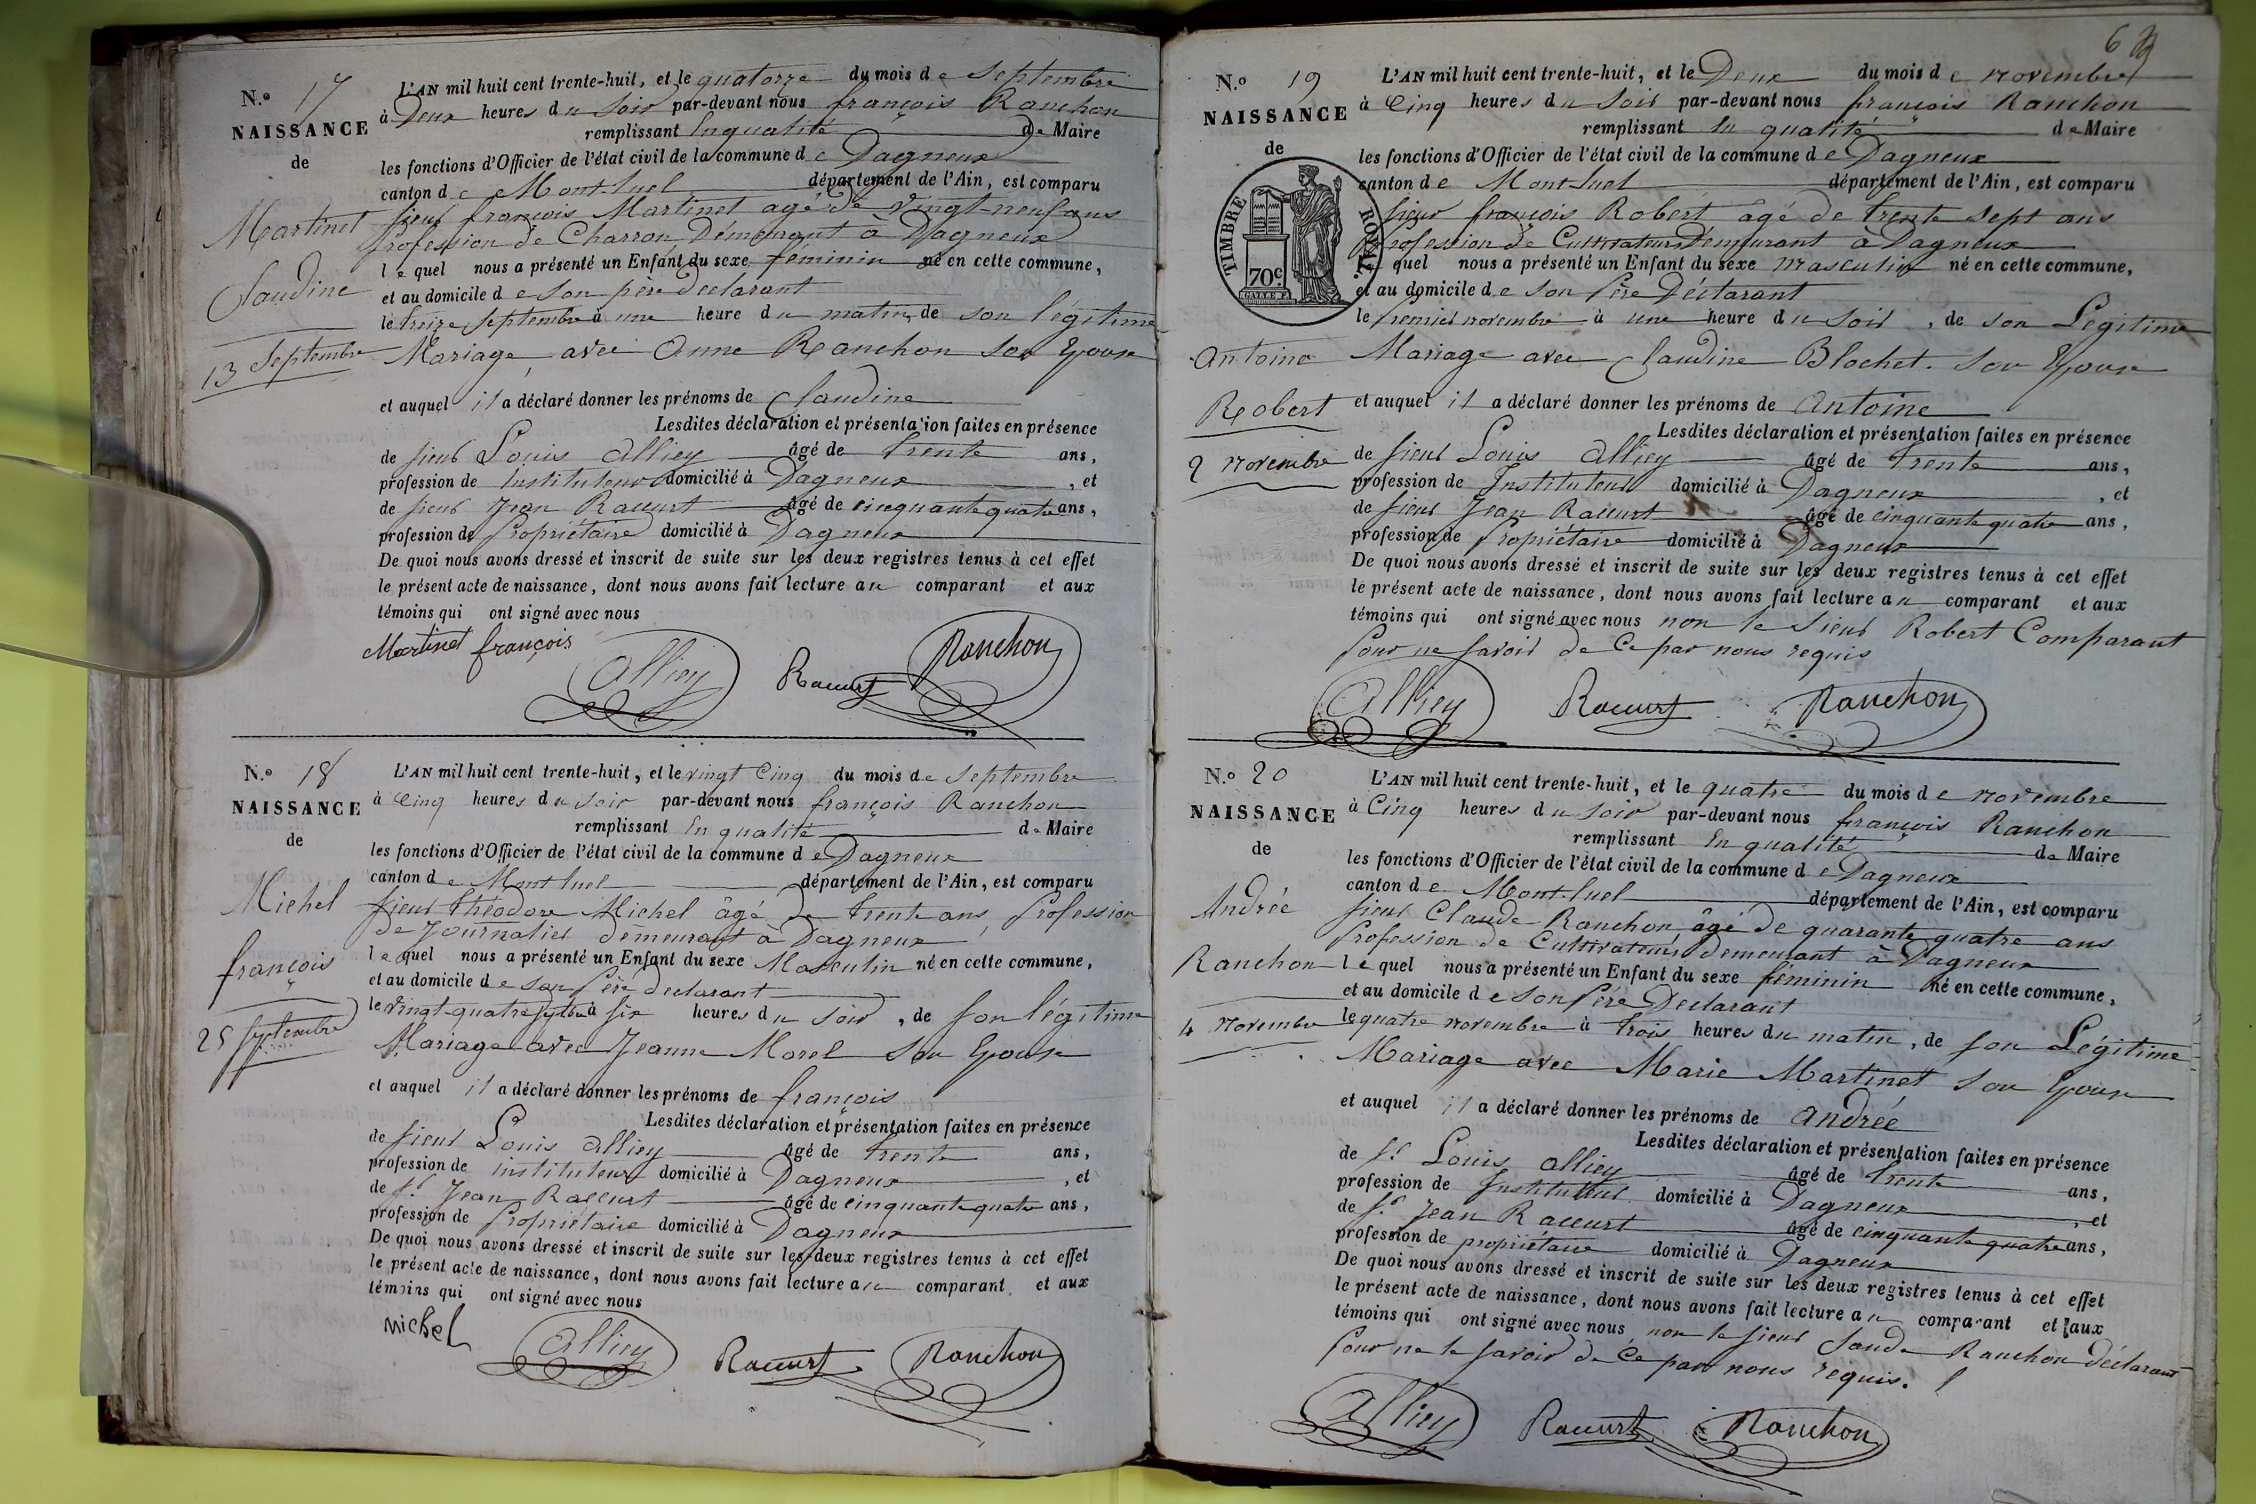 N.o 17
NAISSANCE
de
Martinet
Claudine
13 Septembre
L'AN mil huit cent trente-huit, et le quatorze du mois de Septembre
à Deux heures du Soir par-devant nous françois Ranchon
remplissant En qualité de Maire
les fonctions d'Officier de l'état civil de la commune de Dagneux
canton de Mont-luel département de l'Ain, est comparu
sieur françois Martinet agé de vingt-neuf ans
Profession de Charron Démeurant à Dagneux
lequel nous a présenté un Enfant du sexe féminin né en cette commune,
et au domicile de Son père Declarant
le treize Septembre à une heure du matin, de son légitime
Mariage, avec Anne Ranchon Son Epouse
et auquel il a déclaré donner les prénoms de Claudine
Lesdites déclaration et présentation faites en présence
de sieur Louis Alliey âgé de trente ans,
profession de Instituteur domicilié à Dagneux, et
de sieur Jean Raccurt âgé de cinquante quatre ans,
profession de Propriétaire domicilié à Dagneux
De quoi nous avons dressé et inscrit de suite sur les deux registres tenus à cet effet
le présent acte de naissance, dont nous avons fait lecture au comparant et aux
témoins qui ont signé avec nous
Martinet françois
Alliey Raccurt Ranchon
N.o 18
NAISSANCE
de
Michel
françois
25 Septembre
L'AN mil huit cent trente-huit, et le vingt Cinq du mois de Septembre
à Cinq heures du soir par-devant nous françois Ranchon
remplissant En qualité de Maire
les fonctions d'Officier de l'état civil de la commune de Dagneux
canton de Mont luel département de l'Ain, est comparu
sieur théodore Michel âgé de trente ans, Profession
de Journalier démeurant à Dagneux
lequel nous a présenté un Enfant du sexe Masculin né en cette commune,
et au domicile de son Père declarant
le vingt-quatre septbre à six heures du soir, de son légitime
Mariage avec Jeanne Morel Son Epouse
et auquel il a déclaré donner les prénoms de françois
Lesdites déclaration et présentation faites en présence
de sieur Louis Alliey âgé de trente ans,
profession de instituteur domicilié à Dagneux, et
de Sr Jean Raccurt âgé de cinquante quatre ans,
profession de Propriétaire domicilié à Dagneux
De quoi nous avons dressé et inscrit de suite sur les deux registres tenus à cet effet
le présent acte de naissance, dont nous avons fait lecture au comparant et aux
témoins qui ont signé avec nous
michel
Alliey Raccurt Ranchon
6
N.o 19
NAISSANCE
de
TIMBRE ROYAL
70c
Antoine
Robert
2 Novembre
L'AN mil huit cent trente-huit, et le Deux du mois de Novembre
à Cinq heures du Soir par-devant nous françois Ranchon
remplissant En qualité de Maire
les fonctions d'Officier de l'état civil de la commune de Dagneux
canton de Mont luel département de l'Ain, est comparu
sieur françois Robert agé de trente sept ans
Profession de Cultivateur Démeurant à Dagneux
lequel nous a présenté un Enfant du sexe Masculin né en cette commune,
et au domicile de Son Père Déclarant
le premier novembre à une heure du soir, de son Légitime
Mariage avec Claudine Blochet. Son Epouse
et auquel il a déclaré donner les prénoms de Antoine
Lesdites déclaration et présentation faites en présence
de sieur Louis Alliey âgé de trente ans,
profession de Instituteur domicilié à Dagneux, et
de sieur Jean Raccurt âgé de cinquante quatre ans,
profession de Propriétaire domicilié à Dagneux
De quoi nous avons dressé et inscrit de suite sur les deux registres tenus à cet effet
le présent acte de naissance, dont nous avons fait lecture au comparant et aux
témoins qui ont signé avec nous non le Sieur Robert Comparant
Pour ne savoir de Ce par nous requis
Alliey Raccurt Ranchon
N.o 20
NAISSANCE
de
Andrée
Ranchon
4 Novembre
L'AN mil huit cent trente-huit, et le quatre du mois de Novembre
à Cinq heures du soir par-devant nous françois Ranchon
remplissant En qualité de Maire
les fonctions d'Officier de l'état civil de la commune de Dagneux
canton de Mont-luel département de l'Ain, est comparu
sieur Claude Ranchon âgé de quarante quatre ans
Profession de Cultivateur demeurant à Dagneux
lequel nous a présenté un Enfant du sexe féminin né en cette commune,
et au domicile de son Père Declarant
le quatre novembre à trois heures du matin, de son Légitime
Mariage avec Marie Martinet Son Epouse
et auquel il a déclaré donner les prénoms de Andrée
Lesdites déclaration et présentation faites en présence
de Sr Louis Alliey âgé de trente ans,
profession de Instituteur domicilié à Dagneux, et
de Sr Jean Raccurt âgé de cinquante quatre ans,
profession de propriétaire domicilié à Dagneux
De quoi nous avons dressé et inscrit de suite sur les deux registres tenus à cet effet
le présent acte de naissance, dont nous avons fait lecture au comparant et aux
témoins qui ont signé avec nous non le sieur Claude Ranchon déclarant
Pour ne le savoir de Ce par nous requis.
Alliey Raccurt Ranchon